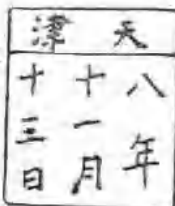 天津
八年
十一月
十三日